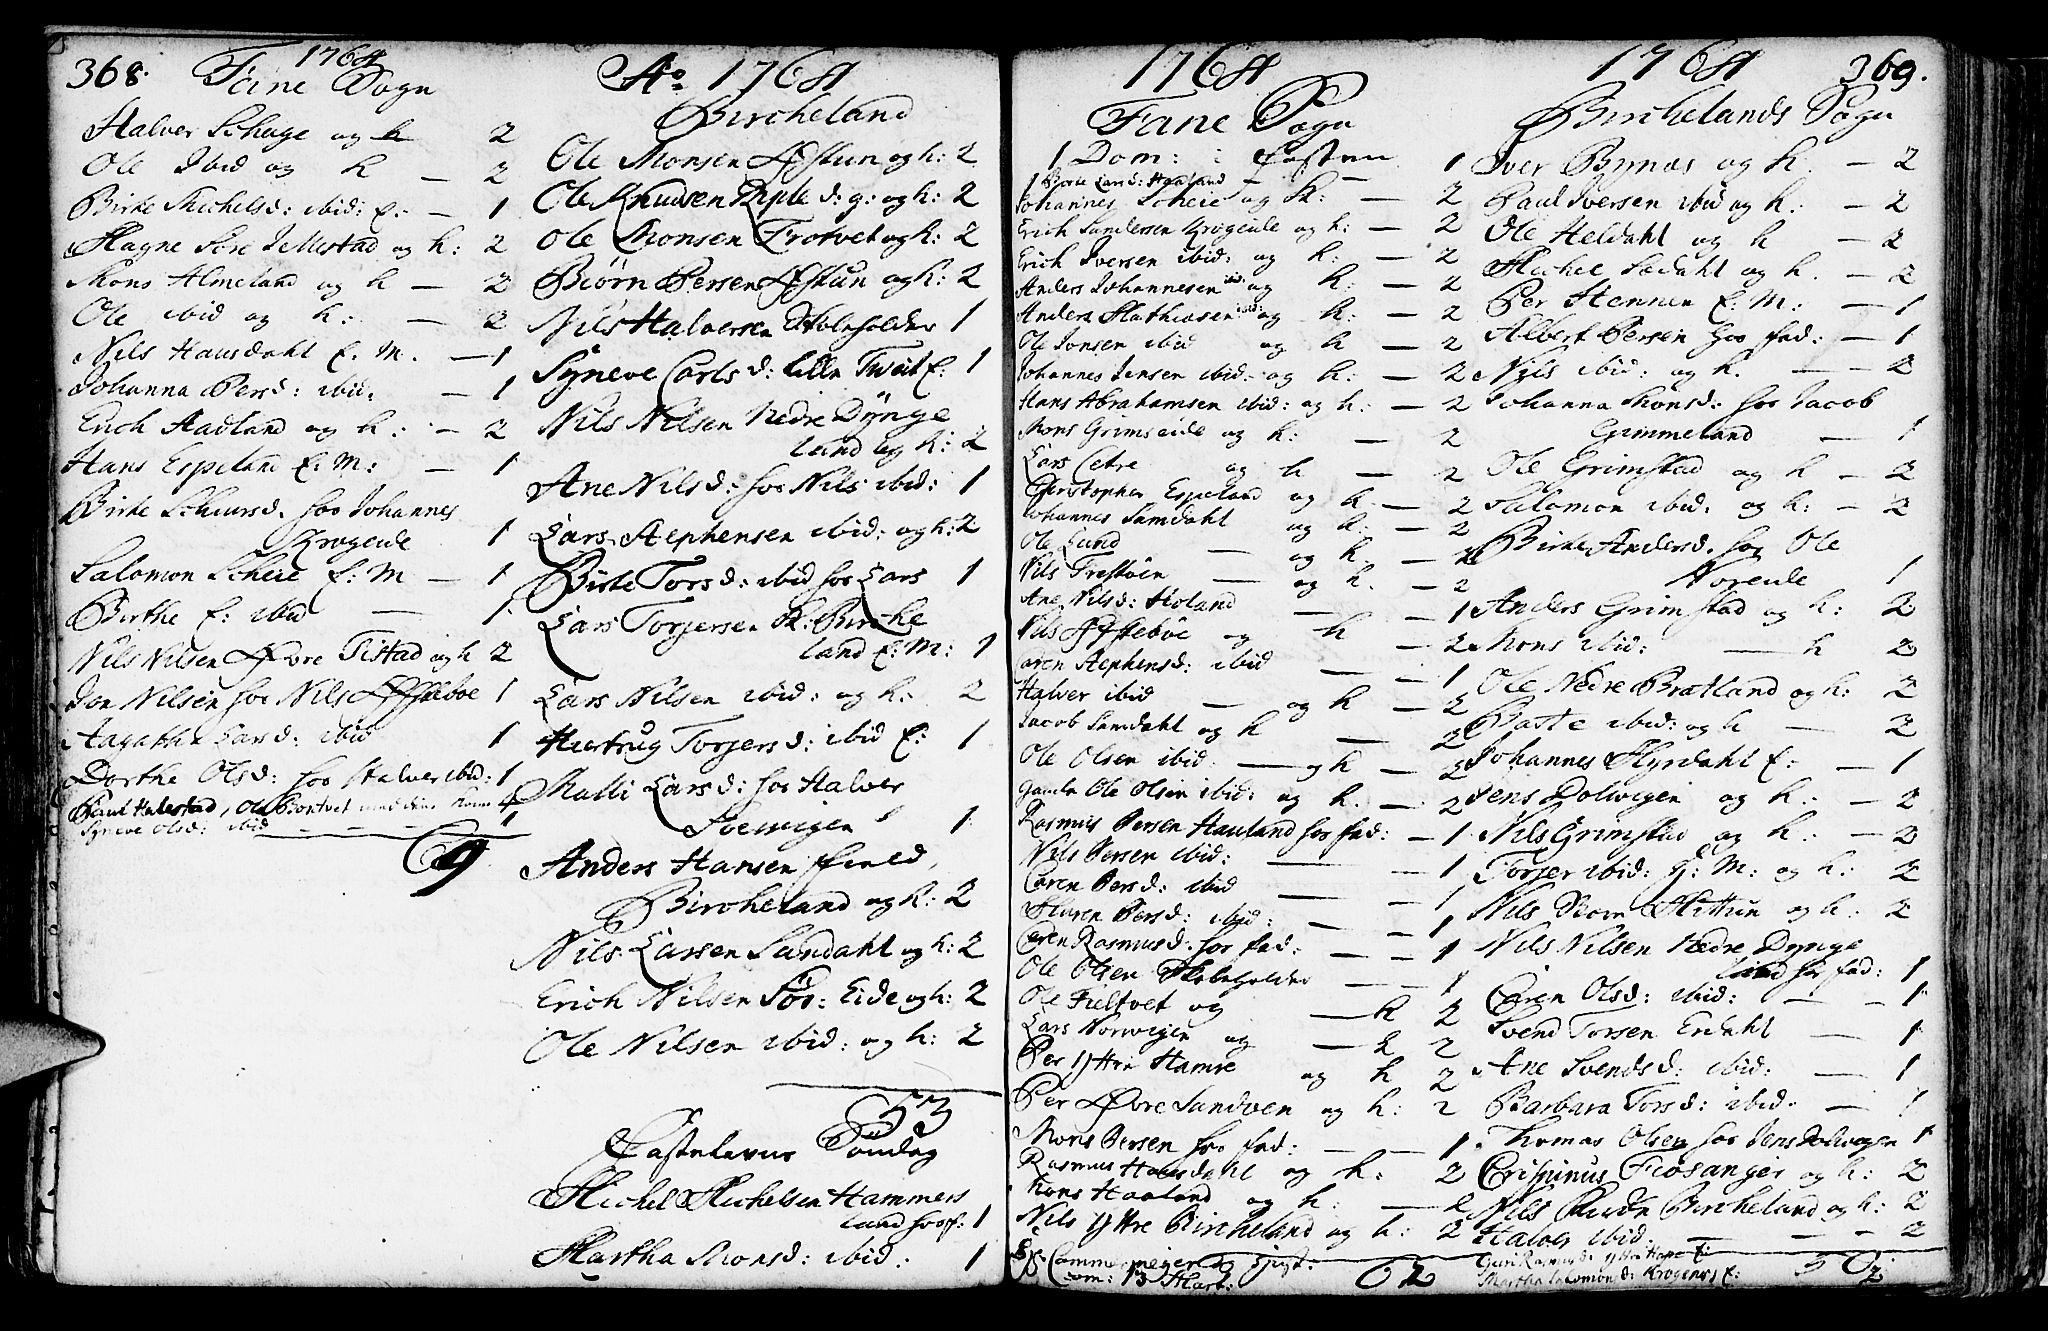 368.
1764
Fane Sogn
Halver Schage og h 2
Ole Ibid og h — 2
Birte Michelsd: ibid: E: — 1
Magne Søre Jellestad og h: 2
Mons Almeland og h — 2
Ole ibid og h: — 2
Nils Hausdahl E. M. — 1
Johanna Persd: ibid. — 1
Erich Aadland og h: — 2
Hans Espeland E: M: — 1
Birte Schiursd. hos Johannes
Krogeide 1
Salomon Scheie E: M — 1
Birthe E: ibid — 1
Nils Nilsen Øvre Titlestad og h 2
Jon Nilsen hos Nils Østebøe 1
Aagatha Larsd: ibid 1
Dorthe Olsd: hos Halver ibid: 1
Syneve Olsd: ibid — 1
69
Ao 1764
Bircheland
Ole Monsen Østun og h: 2
Ole Knudsen Riple d: y: og h: 2
Ole Monsen Trotvet og h: 2
Biørn Persen Østun og h: 2
Nils Halversen Skoleholder 1
Syneve Carlsd: Lille Tveit E: 1
Nils Nilsen Nedre Dynge
land og h: 2
Ane Nilsd: hos Nils ibid: 1
Lars Stephensen ibid: og h: 2
Birte Torsd: ibid hos Lars 1
Lars Torjersen R: Birche
land E: M: 1
Lars Nilsen ibid: og h: 2
Hiertrug Torjersd: ibid E: 1
Malli Larsd: hos Halver
Soewigen 1
Anders Hansen Field,
Bircheland og h: 2
Nils Larsen Sandahl og h: 2
Erich Nilsen Sør: Eide og h: 2
Ole Nilsen ibid: og h: 2
53
Fastelavns Søndag
Michel Michelsen Hammers
land hos f: 1
Martha Monsd: ibid: 1
1764
Fane Sogn
1 Dom: i Fasten 1
1 Børte Larsd: Haaland —
Johannes Scheie og h: — 2
Erich Sandersen Krogeide og h: — 2
Erich Iversen ibid: og h: — 2
Anders Johannesen ibid: og h: — 2
Anders Mathiasen ibid og h: — 2
Ole Jonsen ibid og h — 2
Johannes Jensen ibid: og h: — 2
Hans Abrahamsen ibid: og h: — 2
Mons Grimseide og h: — 2
Lars Cetre og h — 2
Christopher Espeland og h — 2
Johannes Samdahl og h: — 2
Ole Lund — og h — 2
Nils Trestøen — og h. — 2
Ane Nilsd: Holand — 1
Nils Østebøe og h — 2
Caren Stephensd: ibid — 1
Halver ibid — og h — 2
Jacob Samdahl og h — 2
Ole Olsen ibid: — og h — 2
Gamle Ole Olsen ibid: og h. — 2
Rasmus Persen Hauland hos fad: — 1
Nils Persen ibid: — 1
Caren Persd: ibid — 1
Maren Persd: ibid: — 1
Caren Rasmusd: hos fad: — 1
Ole Olsen Skoleholder — 1
Ole Fieltvet og — h 2
Lars Norwigen og — h 2
Per Yttre Hamre og h 2
Per Øvre Sandven og h: 2
Mons Persen hos fad: — 1
Rasmus Hausdahl og h: 2
Mons Haaland og h: — 2
Nils Yttre Bircheland og h: 2
62
1764
369.
Birchelands Sogn
Iver Bynæs og h. — 2
Paul Iversen ibid og h: — 2
Ole Heldahl og h — 2
Michel Sædahl og h. — 2
Per Stennen E: M: — 1
Albert Persen hos fad: — 1
Nils ibid: og h. — 2
Johanna Monsd: hos Jacob
Grimmeland — 1
Ole Grimstad og h — 2
Salomon ibid: og h: — 2
Birte Andersd. hos Ole
Noreide 1
Anders Grimstad og h: 2
Mons ibid: — h 2
Ole Nedre Bratland og h: 2
Baste ibid: og h — 2
Johannes Myrdahl E: — 1
Jens Dolwigen og h: — 2
Nils Grimstad og h: — 2
Torjer ibid: G: M: og h: 2
Nils Storm Mittun og h: 2
Nils Nilsen Nedre Dynge
land hos fad: 1
Caren Olsd: ibid: — 1
Svend Torsen Erdahl — 1
Ane Svendsd: ibid: — 1
Barbara Torsd: ibid: — 1
Thomas Olsen hos Jens Dolvigen 1
Crispinus Fiøsanger og h: 2
Nils Bircheland og h: 2
Halver ibid: — 2
Martha Salomonsd: Krogenes E: